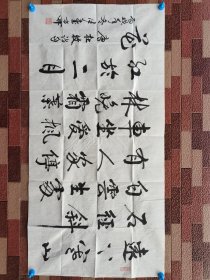 遠上寒山
石徑斜
白雲生處
有人家停
車坐愛楓
林晚霜葉
紅於二月
花
唐杜牧詩